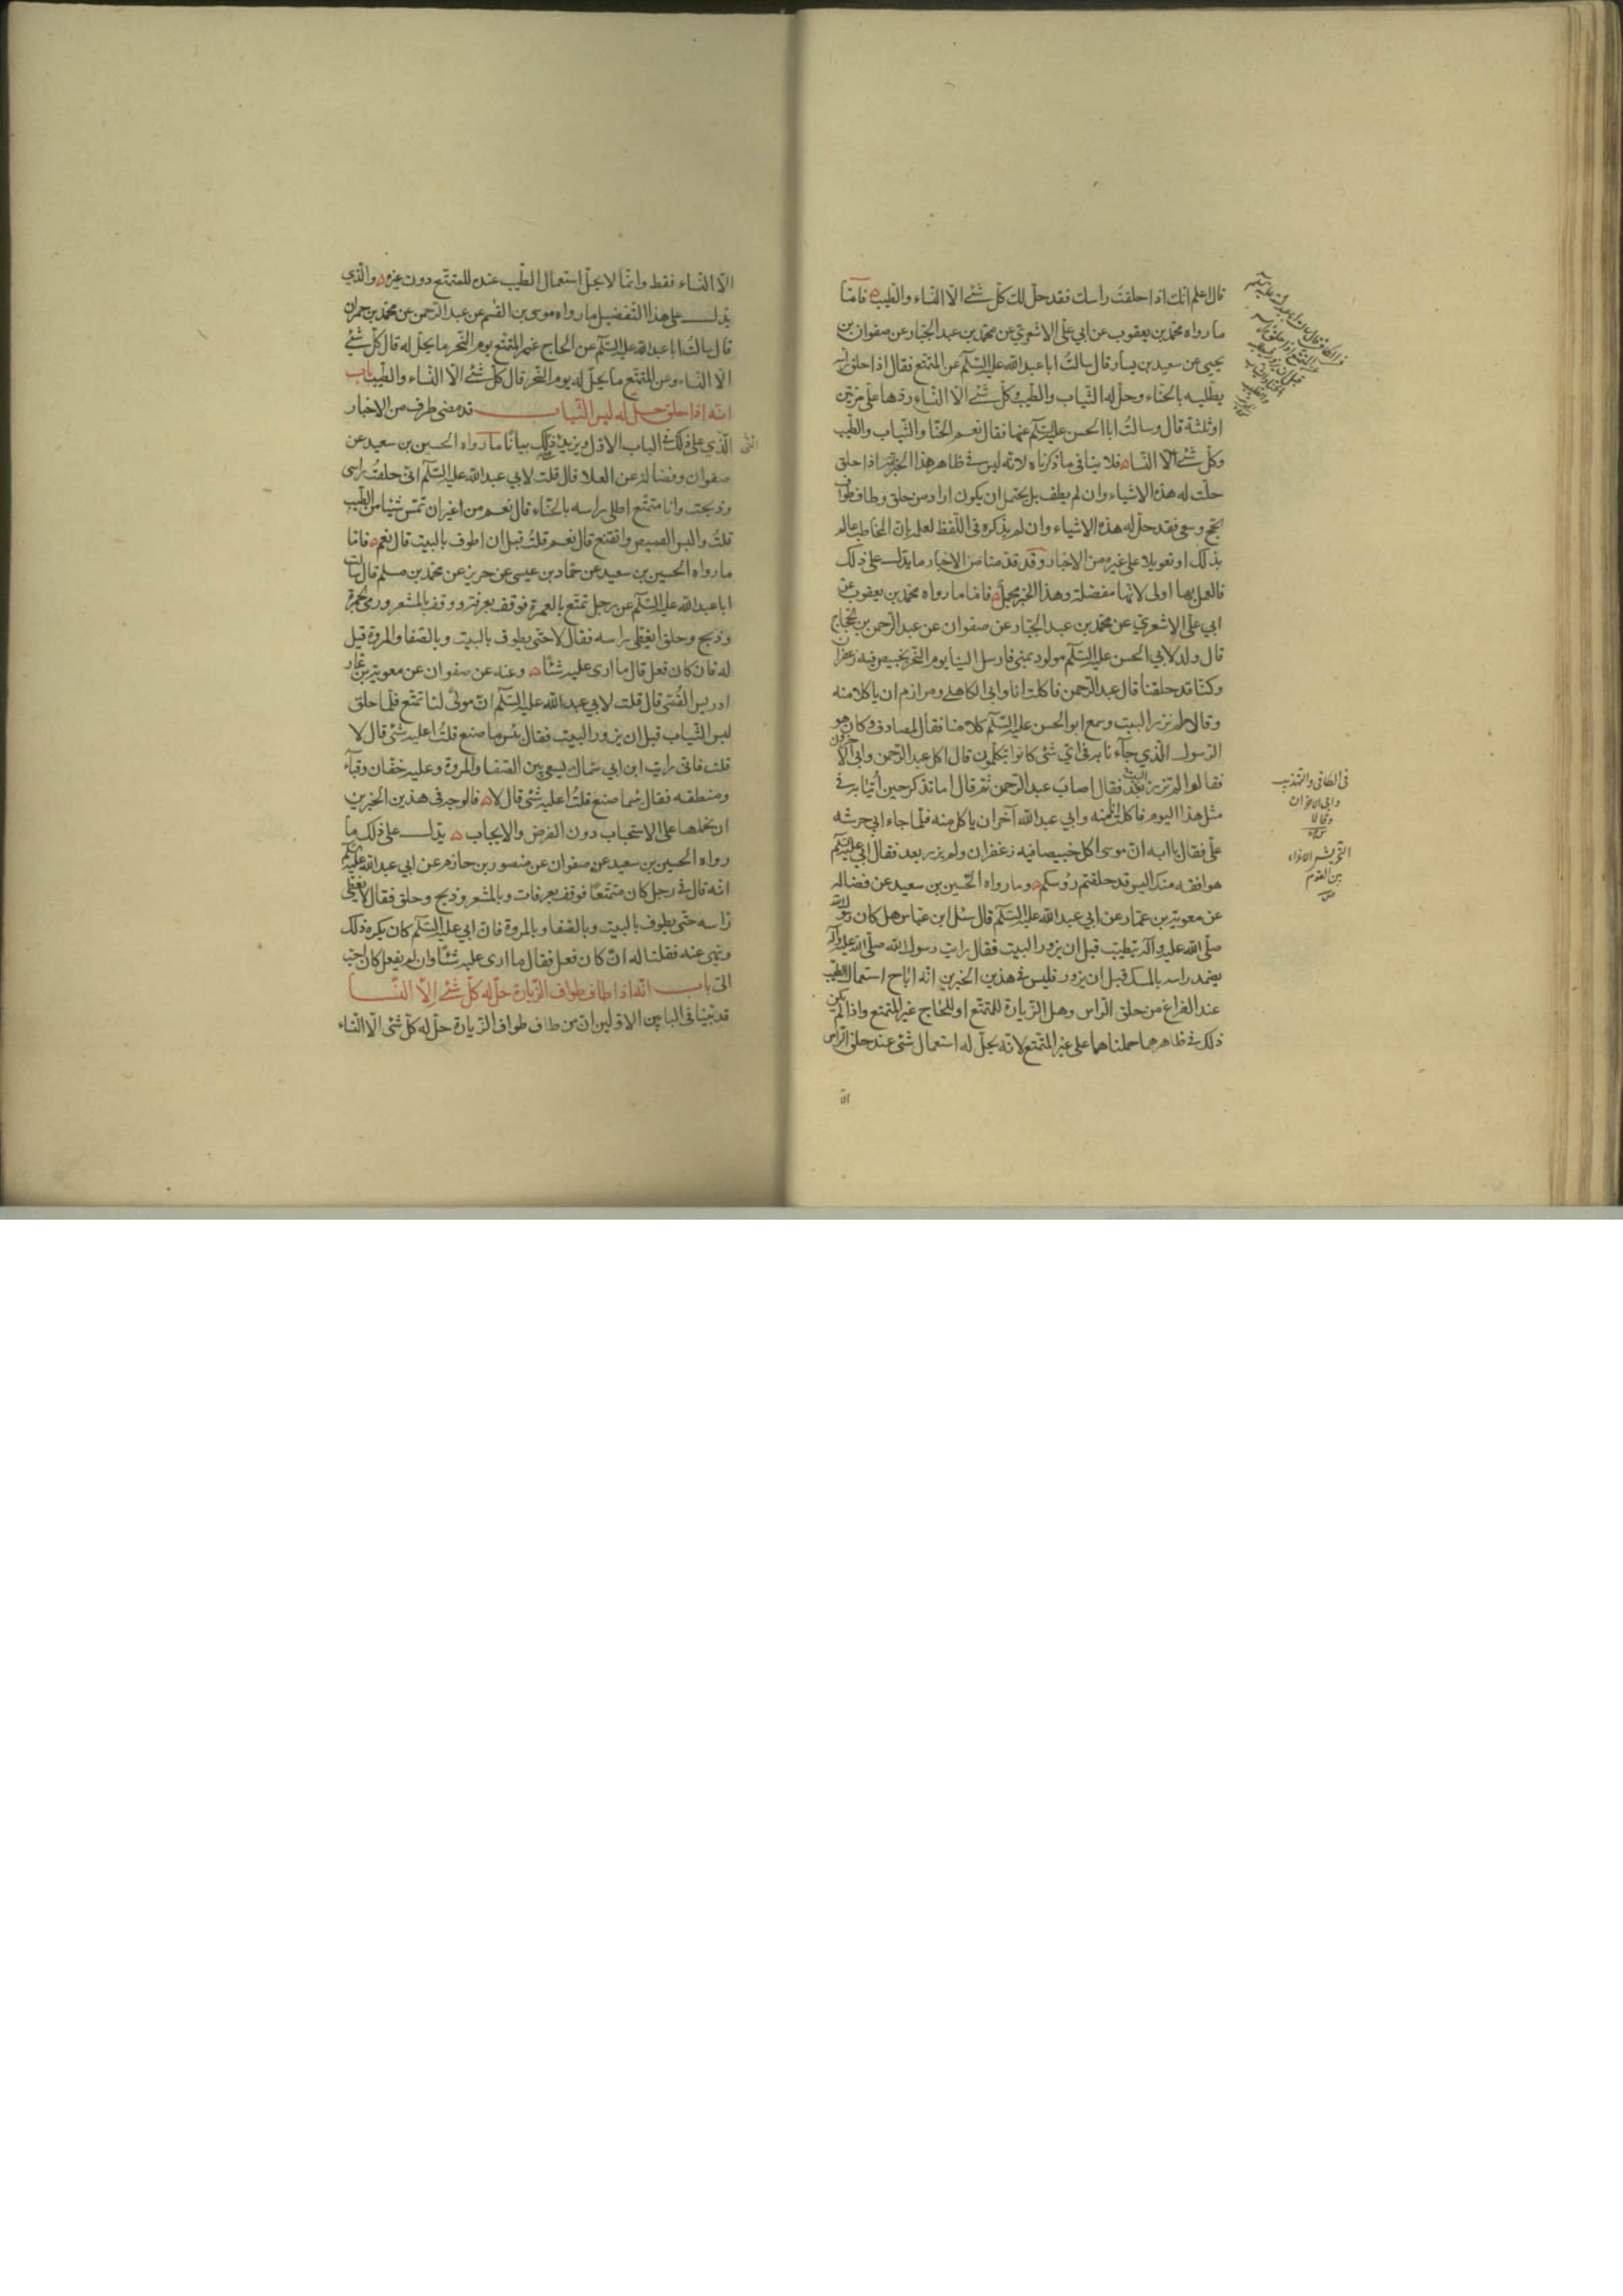 قال اعلم انك اذا حلقت راسك فقد حل لك كل شئ الا النساء والطيب فاما
ما رواه محمد بن يعقوب عن ابي علي الاشعري عن محمد بن عبد الجبار عن صفوان بن
يحيى عن سعيد بن يسار قال سالت ابا عبد الله عليه السلم عن المتمتع فقال اذا حلق راسه
يطليه بالحناء وحل له الثياب والطيب وكل شئ الا النساء ردها علي مرتين
او ثلثة قال وسالت ابا الحسن عليه السلم عنها فقال نعم الحنا والثياب والطيب
وكل شئ الا النساء فلا ينافي ما ذكرناه لانه ليس في ظاهر هذا الخبر انه اذا حلق
حلت له هذه الاشياء وان لم يطف بل يحتمل ان يكون اراد من حلق وطاف طواف
الحج وسعى فقد حل له هذه الاشياء وان لم يذكره في اللفظ لعلمه بان المخاطب عالم
بذلك او تعويلا على غيره من الاخبار وقد قدمنا من الاخبار ما يدل على ذلك
فالعمل بها اولى لانها مفصلة وهذا الخبر مجمل فاما ما رواه محمد بن يعقوب عن
ابي علي الاشعري عن محمد بن عبد الجبار عن صفوان عن عبد الرحمن بن الحجاج
قال ولد لابي الحسن عليه السلم مولود بمنى فارسل الينا يوم النحر بخبيص فيه زعفران
وكنا قد حلقنا قال عبد الرحمن فاكلت انا وابى الكاهلي ومرازم ان ياكلا منه
وقالا لم نزر البيت وسمع ابو الحسن عليه السلم كلامنا فقال لمصادف وكان هو
الرسول الذي جاءنا به في اي شئ كانوا يتكلمون قال اكل عبد الرحمن وابى الاخرون
فقالوا لم نزر البيت بعد فقال اصاب عبد الرحمن ثم قال اما تذكر حين اتينا به في
مثل هذا اليوم فاكلت انا منه وابي عبد الله اخي ان ياكل منه فلما جاء ابي حرشه
علي فقال يا ابه ان موسى اكل خبيصا فيه زعفران ولم يزر بعد فقال ابي عليه السلم
هو افقه منك اليس قد حلقتم رؤسكم وما رواه الحسين بن سعيد عن فضاله
عن معوية بن عمار عن ابي عبد الله عليه السلم قال سئل ابن عباس هل كان رسول الله
صلى الله عليه وآله يتطيب قبل ان يزور البيت فقال رايت رسول الله صلى الله عليه وآله
يضمد راسه بالمسك قبل ان يزور فليس في هذين الخبرين انه اباح استعمال الطيب
عند الفراغ من حلق الراس وهل الزيارة للمتمتع او للحاج غير المتمتع واذا لم يكن
ذلك في ظاهرهما حملناهما على غير المتمتع لانه يحل له استعمال شئ عند حلق الراس
الا
في الكافي والتهذيب
وابى الاخران
وقالا
التحريش الاغراء
بين القوم
الا النساء فقط وانما لا يحل استعمال الطيب عنده للمتمتع دون غيره والذي
يدل على هذا التفصيل ما رواه موسى بن القسم عن عبد الرحمن عن محمد بن حمران
قال سالت ابا عبد الله عليه السلم عن الحاج غير المتمتع يوم النحر ما يحل له قال كل شئ
الا النساء وعن المتمتع ما يحل له يوم النحر قال كل شئ الا النساء والطيب باب
انه اذا حلق حل له لبس الثياب قد مضى طرف من الاخبار
الذي على ذلك في الباب الاول ويزيد ذلك بيانا ما رواه الحسين بن سعيد عن
صفوان وفضالة عن العلا قال قلت لابي عبد الله عليه السلم اني حلقت راسى
وذبحت وانا متمتع اطلى راسه بالحناء قال نعم من غير ان تمس شيئا من الطيب
قلت والبس القميص واتقنع قال نعم قلت قبل ان اطوف بالبيت قال نعم فاما
ما رواه الحسين بن سعيد عن حماد بن عيسى عن حريز عن محمد بن مسلم قال سالت
ابا عبد الله عليه السلم عن رجل تمتع بالعمرة فوقف بعرفة ووقف بالمشعر ورمى الجمرة
وذبح وحلق ايغطى راسه فقال لا حتى يطوف بالبيت وبالصفا والمروة قيل
له فان كان فعل قال ما ارى عليه شئا وعنه عن صفوان عن معوية بن عمار
ادريس القمى قال قلت لابي عبد الله عليه السلم ان مولى لنا تمتع فلما حلق
لبس الثياب قبل ان يزور البيت فقال بئس ما صنع قلت اعليه شئ قال لا
قلت فانى رايت ابن ابي سماك يسعى بين الصفا والمروة وعليه خفان وقباء
ومنطقه فقال بئسما صنع قلت اعليه شئ قال لا فالوجه في هذين الخبرين
ان نحملها على الاستحباب دون الفرض والايجاب يدل على ذلك ما
رواه الحسين بن سعيد عن صفوان عن منصور بن حازم عن ابي عبد الله عليه السلم
انه قال في رجل كان متمتعا فوقف بعرفات وبالمشعر وذبح وحلق فقال لا يغطى
راسه حتى يطوف بالبيت وبالصفا وبالمروة فان ابي عليه السلم كان يكره ذلك
وينهى عنه فقلنا له ان كان فعل فقال ما ارى عليه شئا وان لم يفعل كان احب
الى باب انه اذا طاف طواف الزيارة حل له كل شئ الا النسا
قد بينا في البابين الاولين ان من طاف طواف الزيارة حل له كل شئ الا النساء